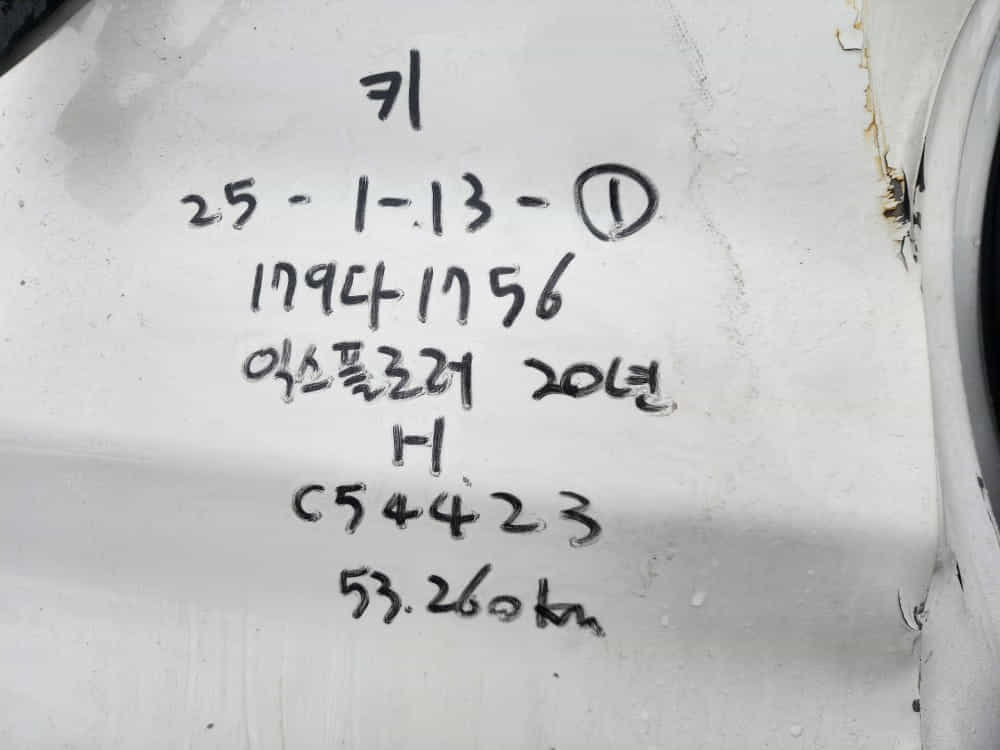 키
25-1-13-①
179다1756
익스플로러 20년
H
C54423
53.260km